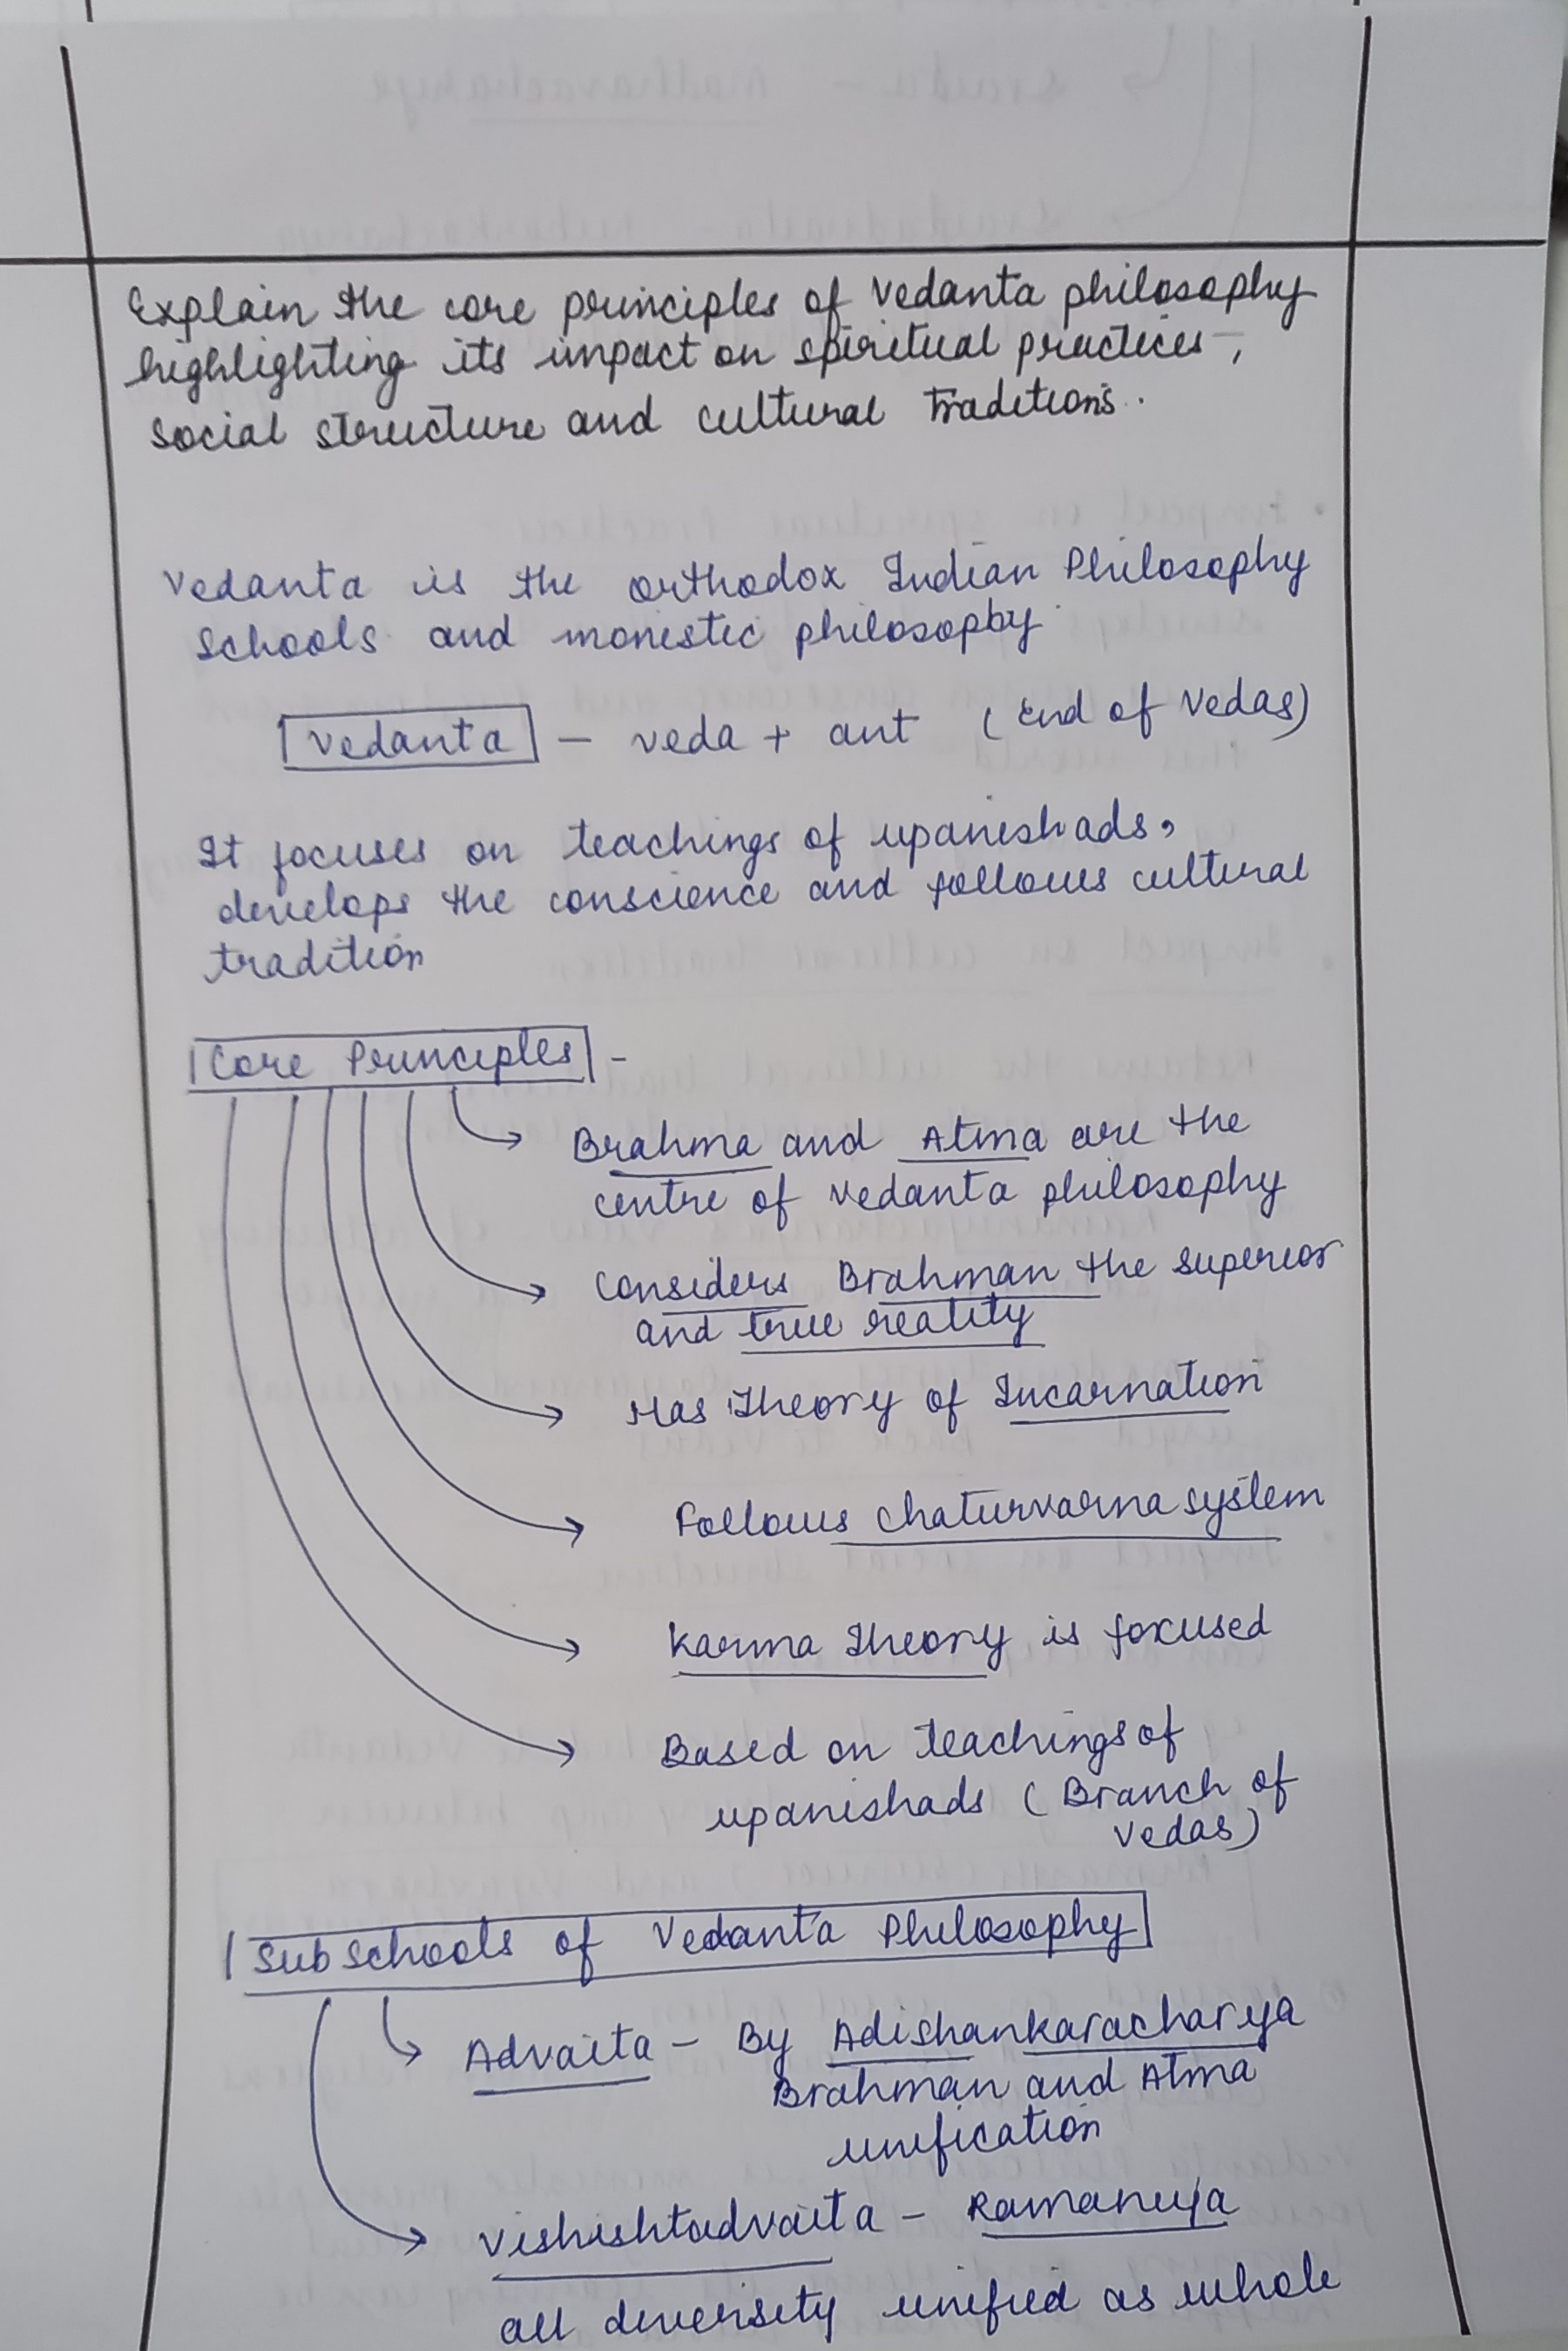 Explain the core principles of Vedanta philosophy
highlighting its impact on spiritual practices,
social structure and cultural traditions.
Vedanta is the orthodox Indian Philosophy
Schools and monistic philosophy
Vedanta - veda + ant (End of Vedas)
It focuses on teachings of upanishads,
develops the conscience and follows cultural
tradition
Core Principles -
Brahma and Atma are the
centre of vedanta philosophy
Considers Brahman the superior
and true reality
Has Theory of Incarnation
Follows chaturvarna system
Karma Theory is focused
Based on teachings of
upanishads (Branch of
Vedas)
Sub Schools of Vedanta Philosophy
Advaita - By Adishankaracharya
Brahman and Atma
unification
Vishishtadvaita - Ramanuja
all diversity unified as whole